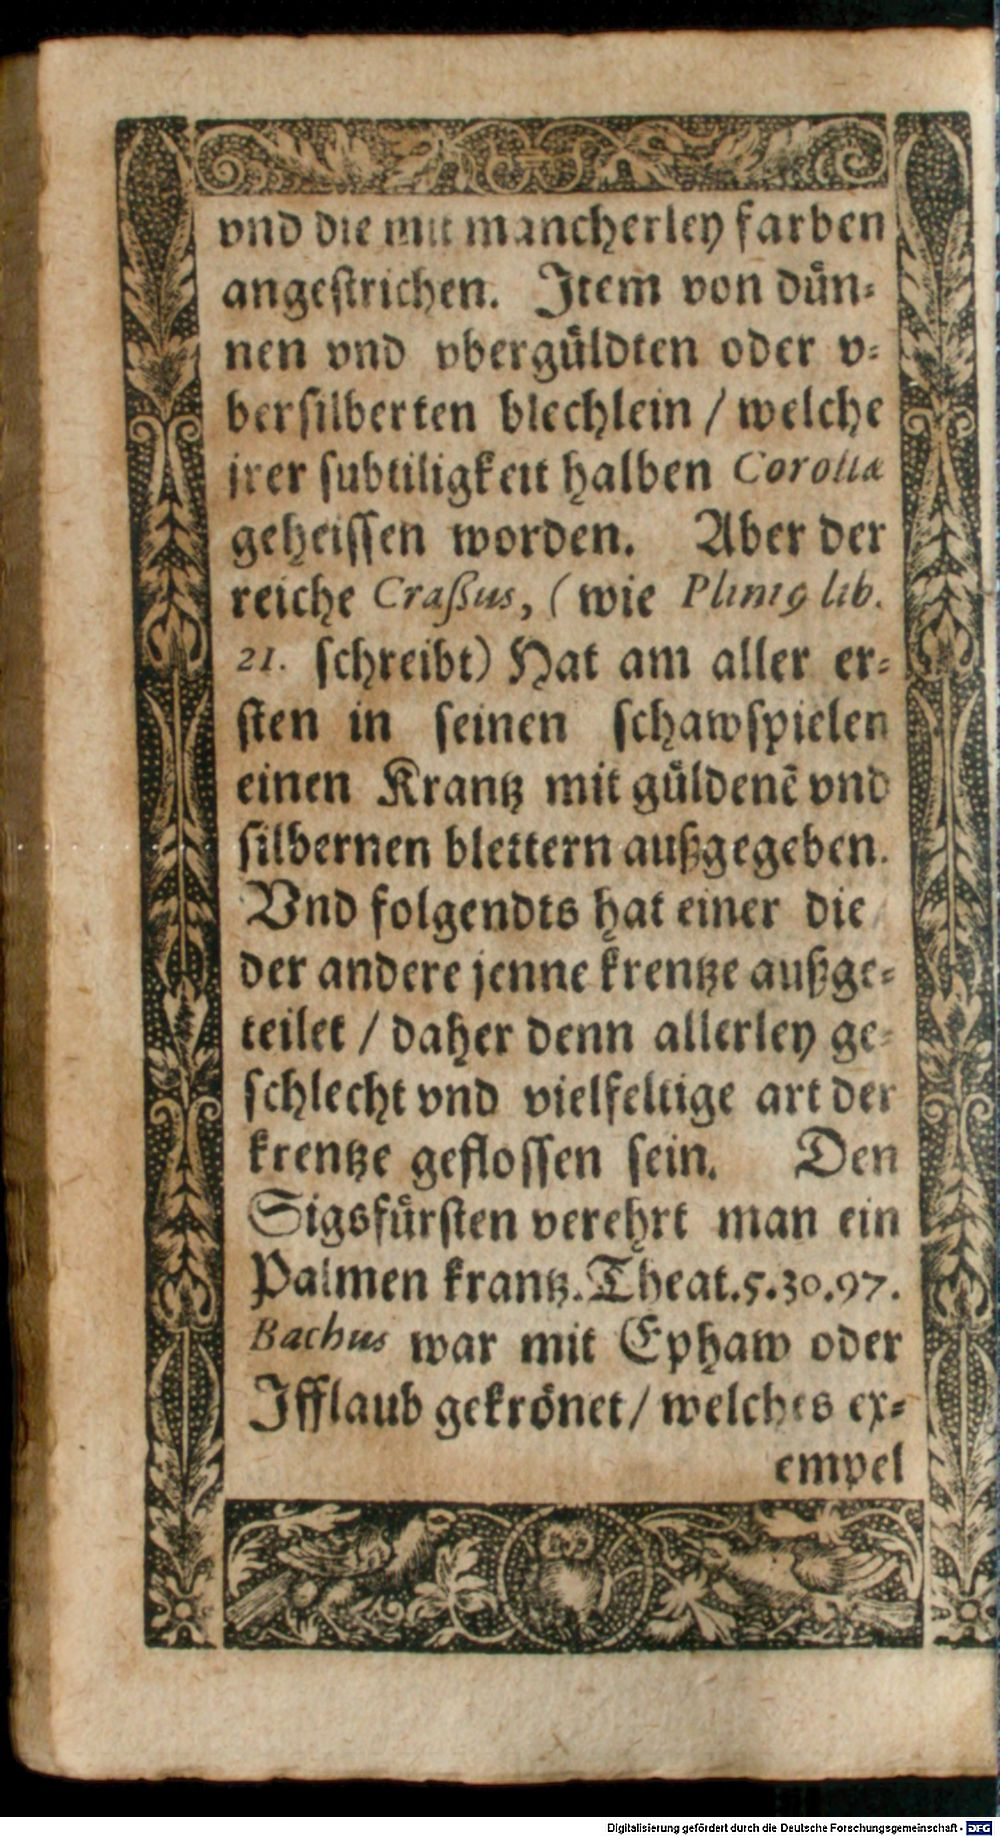 vnd die mit mancherley farben
angestrichen. Item von duͤn⸗
nen vnd vberguͤldten oder v⸗
bersilberten blechlein / welche
jrer subtiligkeit halben Corollæ
geheissen worden. Aber der
reiche Craßus, (wie Pliniꝰ lib.
21. schreibt) Hat am aller er⸗
sten in seinen schawspielen
einen Krantz mit guͤldenẽ vnd
silbernen blettern außgegeben.
Vnd folgendts hat einer die
der andere jenne krentze außge⸗
teilet / daher denn allerley ge⸗
schlecht vnd vielfeltige art der
krentze geflossen sein. Den
Sigsfuͤrsten verehrt man ein
Palmen krantz. Theat. 5. 30. 97.
Bachus war mit Ephaw oder
Jfflaub gekroͤnet / welches ex⸗
empel
Digitalisierung gefördert durch die Deutsche Forschungsgemeinschaft - DFG